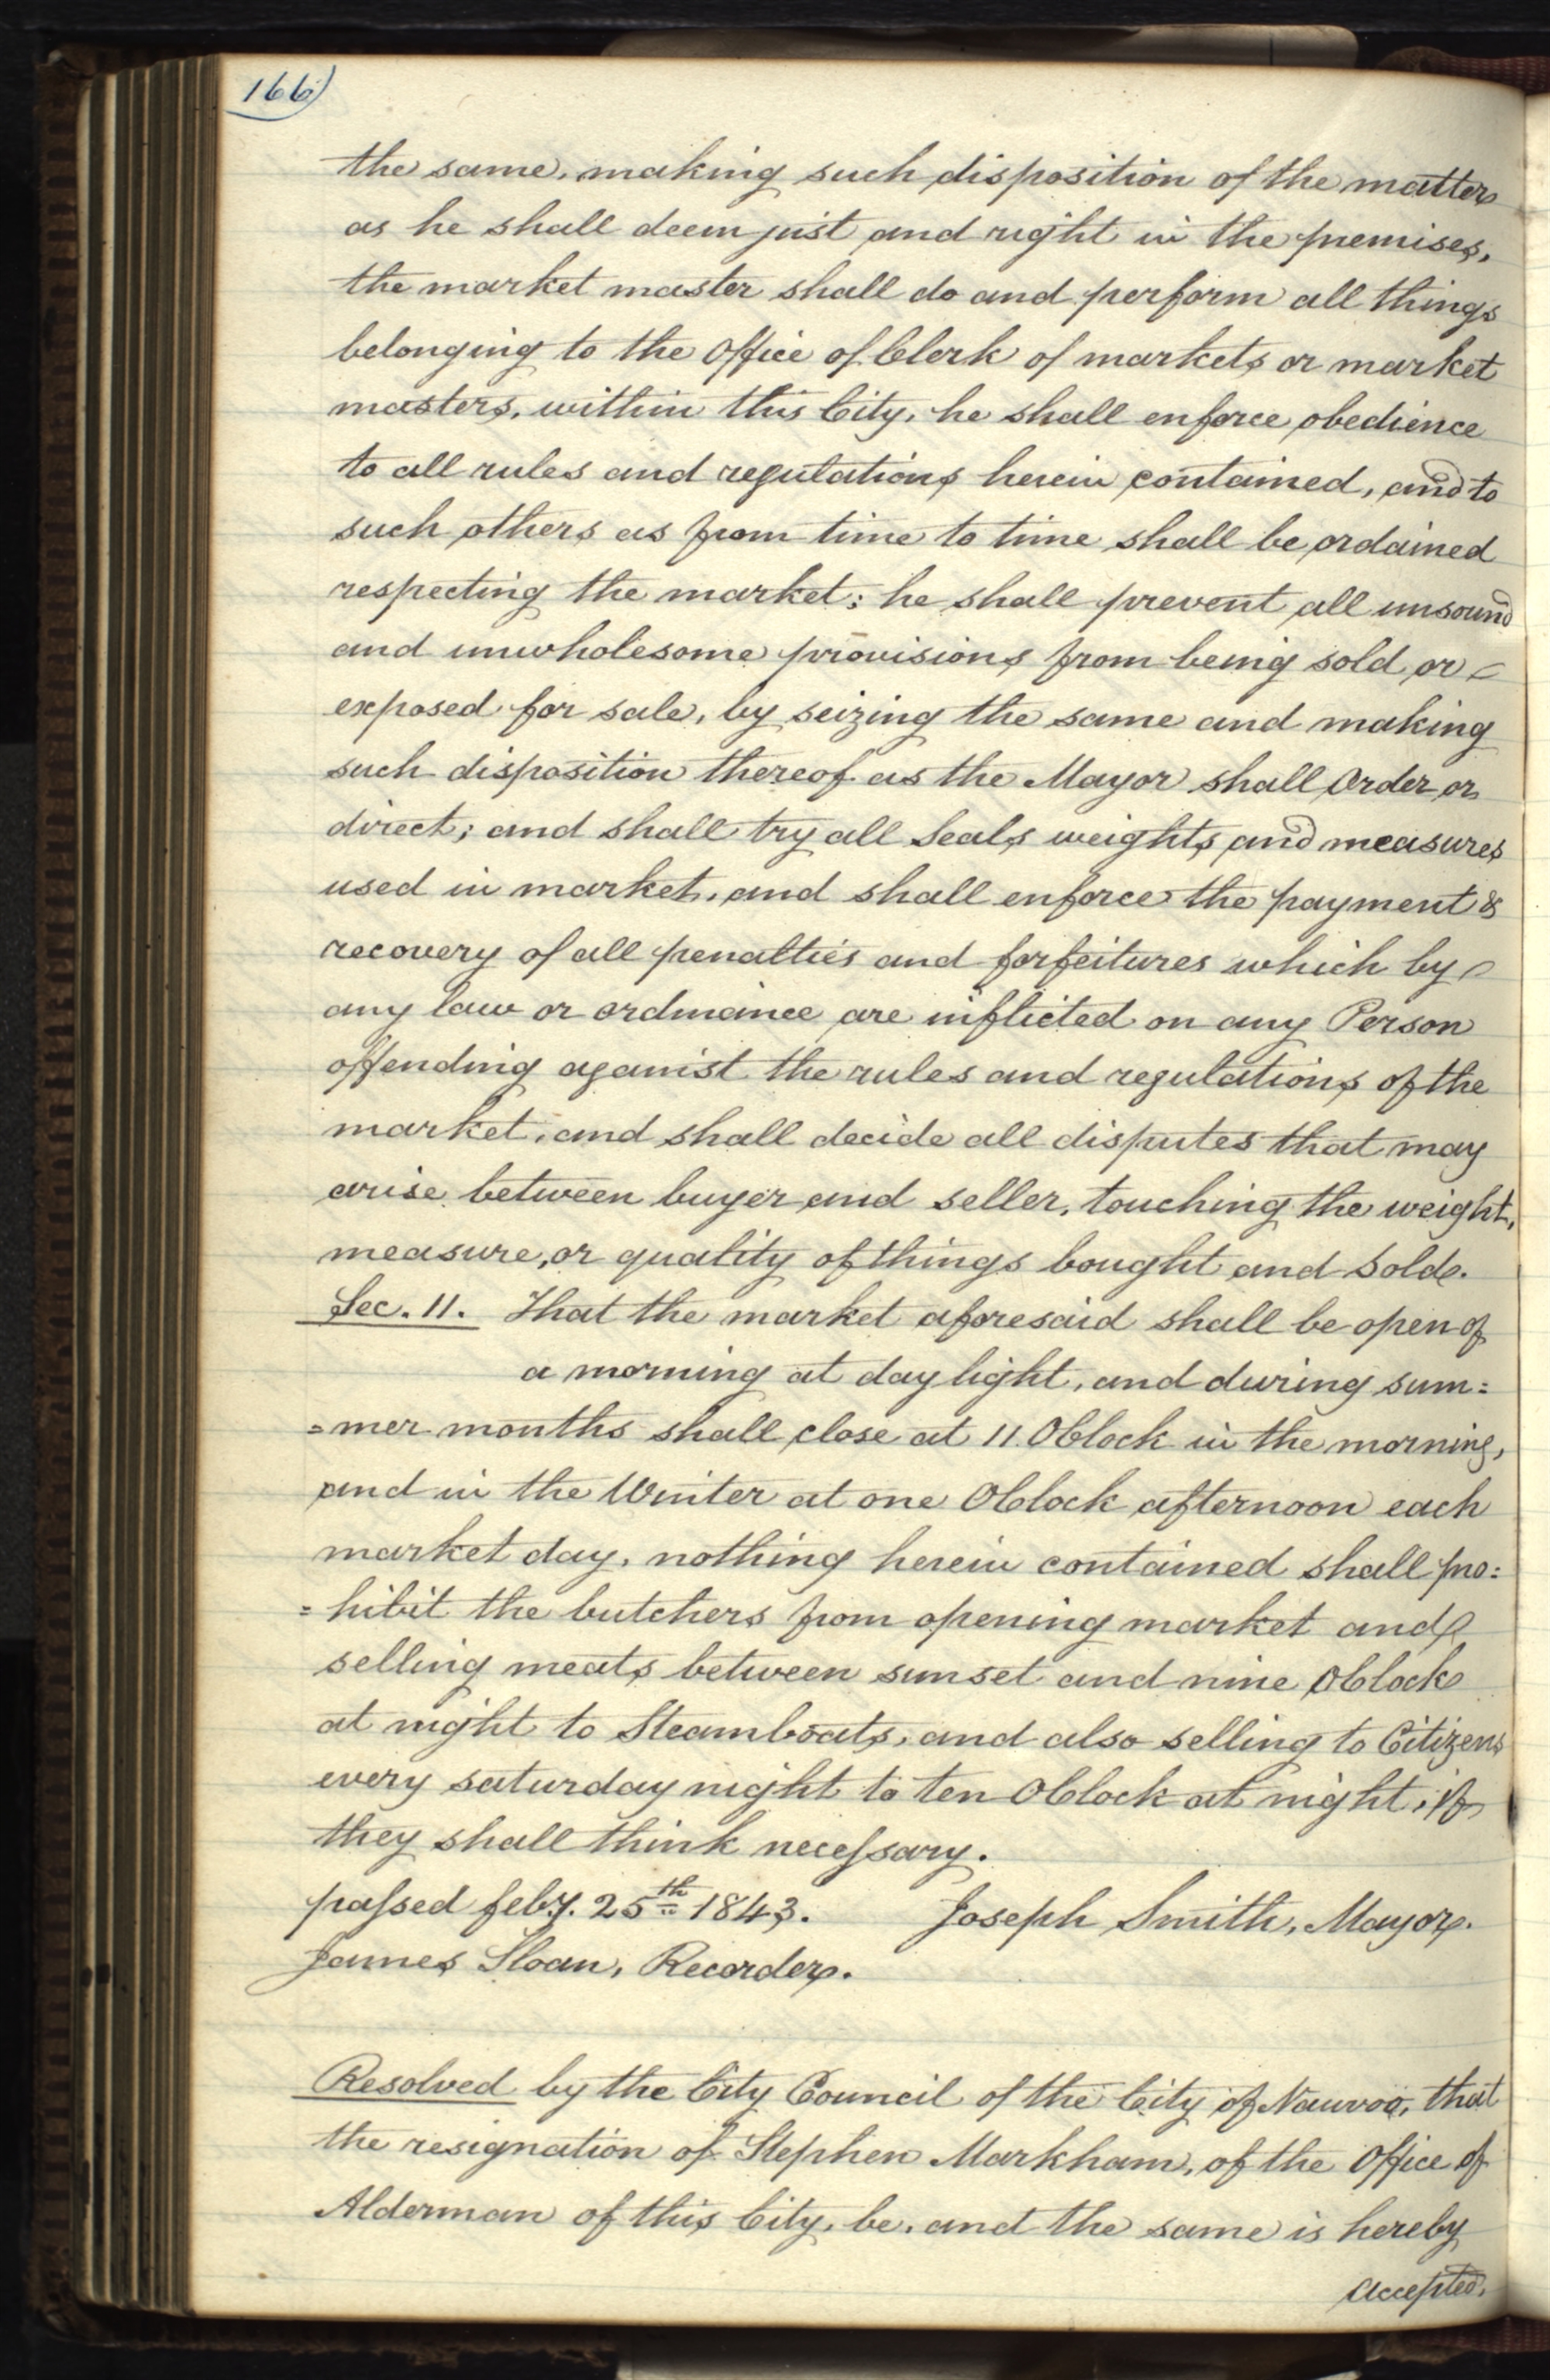 166)
the same, making such disposition of the matter
as he shall deem just and right in the premises,
the market master shall do and perform all things
belonging to the Office of Clerk of markets or market
masters, within this City, he shall enforce obedience
to all rules and regulations herein contained, and to
such others as from time to time shall be ordained
respecting the market; he shall prevent all unsound
and unwholesome provisions from being sold or
exposed for sale, by seizing the same and making
such disposition thereof as the Mayor shall Order or
direct; and shall try all Seals weights and measures
used in market, and shall enforce the payment &
recovery of all penalties and forfeitures which by
any law or ordinance are inflicted on any Person
offending against the rules and regulations of the
market, and shall decide all disputes that may
arise between buyer and seller, touching the weight,
measure, or quality of things bought and Sold.
Sec. 11. That the market aforesaid shall be open of
a morning at day light, and during sum=
=mer months shall close at 11 OClock in the morning,
and in the Winter at one OClock afternoon each
market day, nothing herein contained shall pro=
=hibit the butchers from opening market and
selling meats between sunset and nine OClock
at night to Steamboats, and also selling to Citizens
every saturday night to ten OClock at night, if
they shall think necessary.
passed feby. 25th 1843. Joseph Smith, Mayor.
James Sloan, Recorder.
Resolved by the City Council of the City of Nauvoo, that
the resignation of Stephen Markham, of the Office of
Alderman of this City, be, and the same is hereby
Accepted,